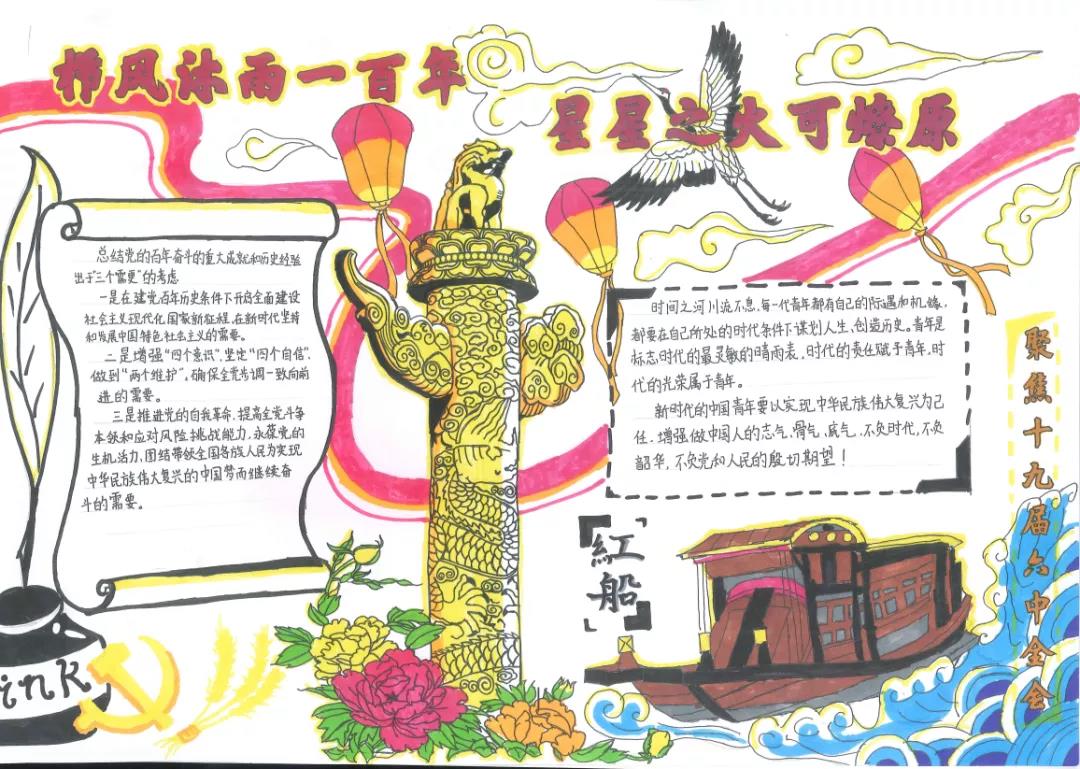 栉风沐雨一百年
星星之火可燎原
总结党的百年奋斗的重大成就和历史经验
出于"三个需要"的考虑
一是在建党百年历史条件下开启全面建设
社会主义现代化国家新征程,在新时代坚持
和发展中国特色社会主义的需要。
二是增强"四个意识",坚定"四个自信",
做到"两个维护",确保全党步调一致向前
进的需要。
三是推进党的自我革命,提高全党斗争
本领和应对风险挑战能力,永葆党的
生机活力,团结带领全国各族人民为实现
中华民族伟大复兴的中国梦而继续奋
斗的需要。
时间之河川流不息,每一代青年都有自己的际遇和机缘,
都要在自己所处的时代条件下谋划人生、创造历史。青年是
标志时代的最灵敏的晴雨表,时代的责任赋予青年,时
代的光荣属于青年。
新时代的中国青年要以实现中华民族伟大复兴为己
任,增强做中国人的志气、骨气、底气,不负时代,不负
韶华,不负党和人民的殷切期望!
聚焦十九届六中全会
紅船
ink